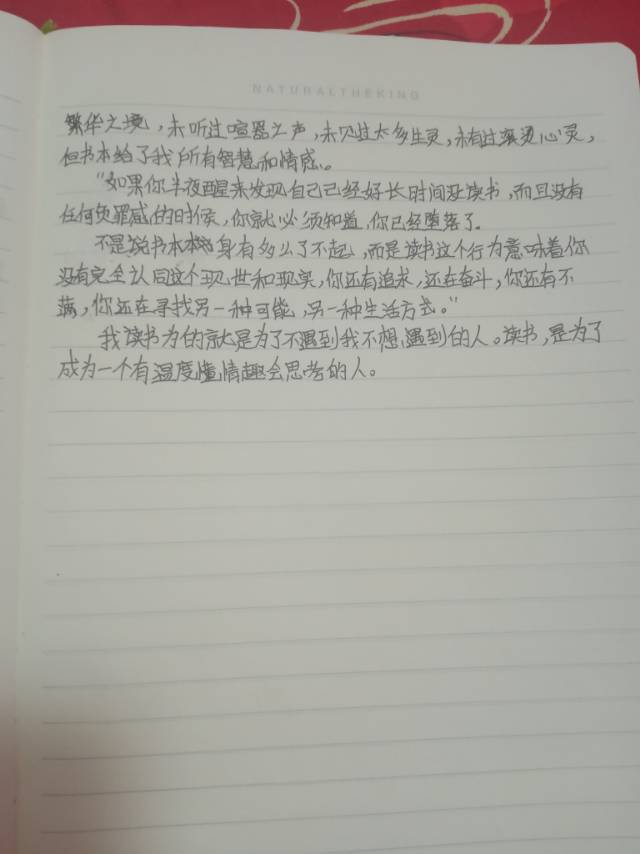 NATURALTHEKING
繁华之境，未听过喧嚣之声，未见过太多生灵，未有过滚烫心灵，
但书本给了我所有智慧和情感。
"如果你半夜醒来发现自己已经好长时间没读书，而且没有
任何负罪感的时候，你就必须知道，你已经堕落了。
不是说书本本身有多么了不起，而是读书这个行为意味着你
没有完全认同这个现世和现实，你还有追求，还在奋斗，你还有不
满，你还在寻找另一种可能，另一种生活方式。"
我读书为的就是为了不遇到我不想遇到的人。读书，是为了
成为一个有温度懂情趣会思考的人。